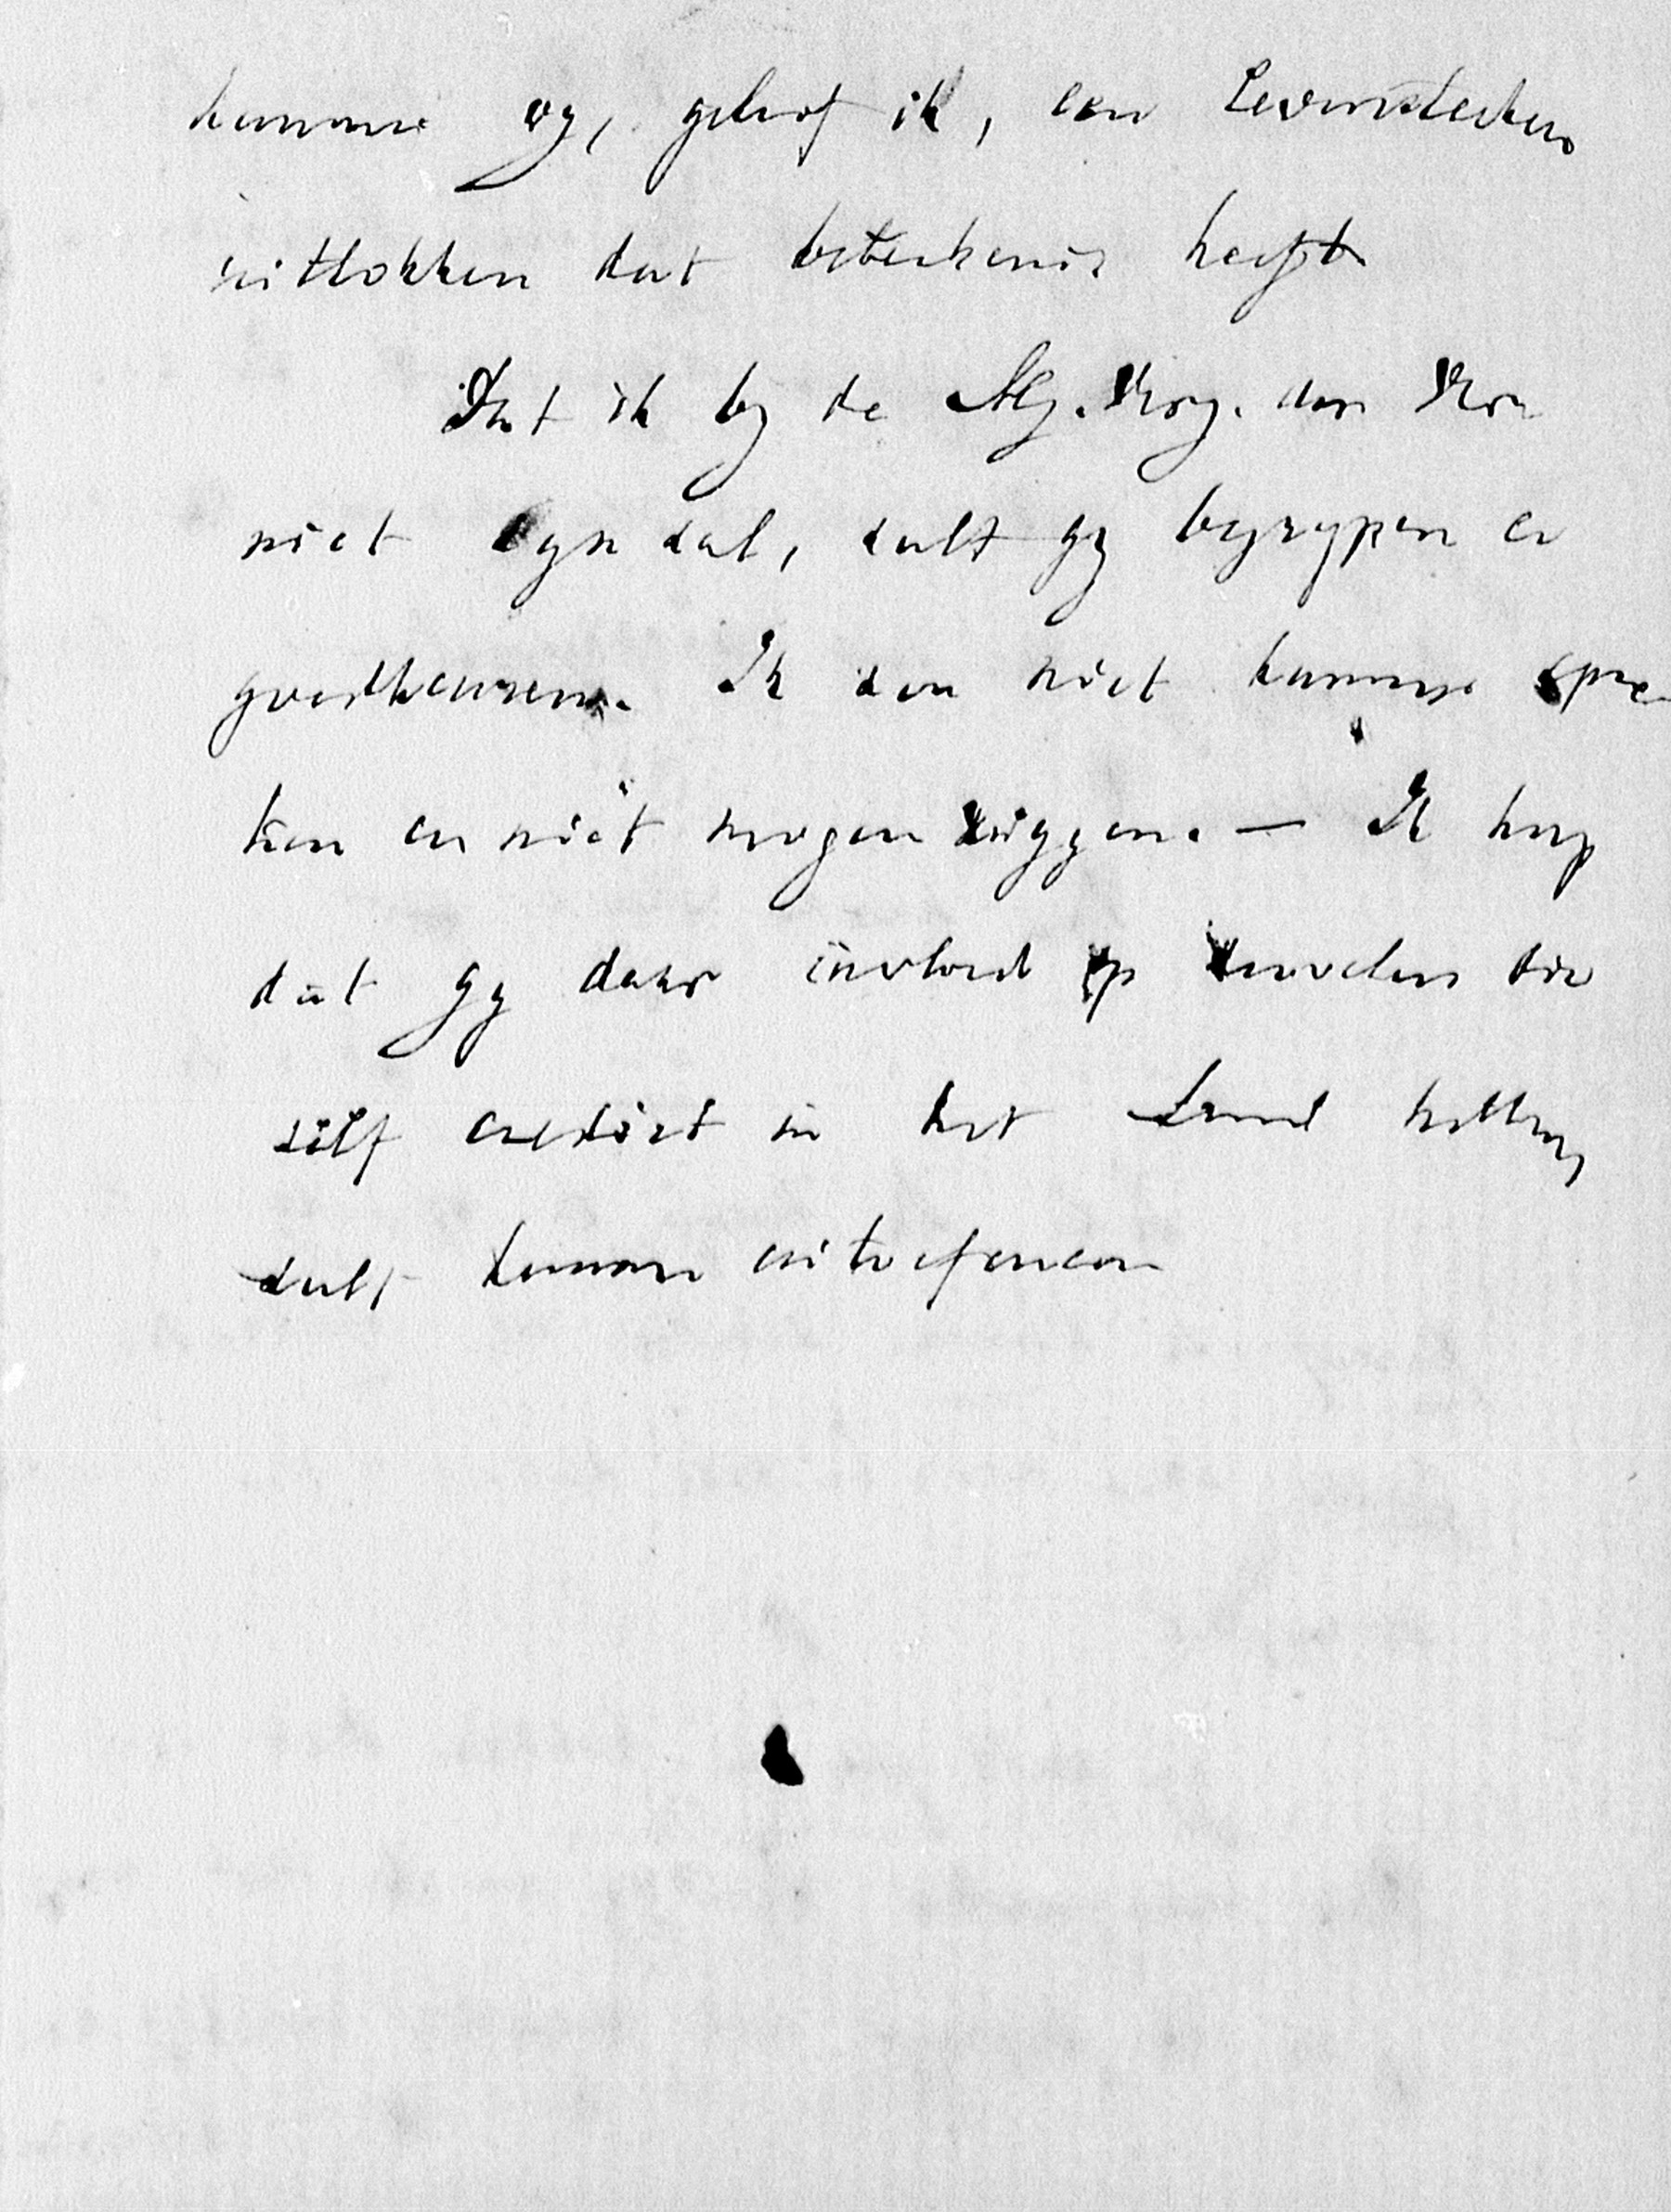 kunnen wy, geloof ik, een Levensteeken
uitlokken dat beteekenis heeft
Dat ik by de Alg. Verg. den
niet zyn zal, zult gy begrypen en
goedkeuren. Ik zou niet kunnen spre
ken en niet mogen zwijgen. — Ik hoop
dat gy daar invloed op zoovelen die
zelf crediet in het Land hebben
zult kunnen uitoefenen